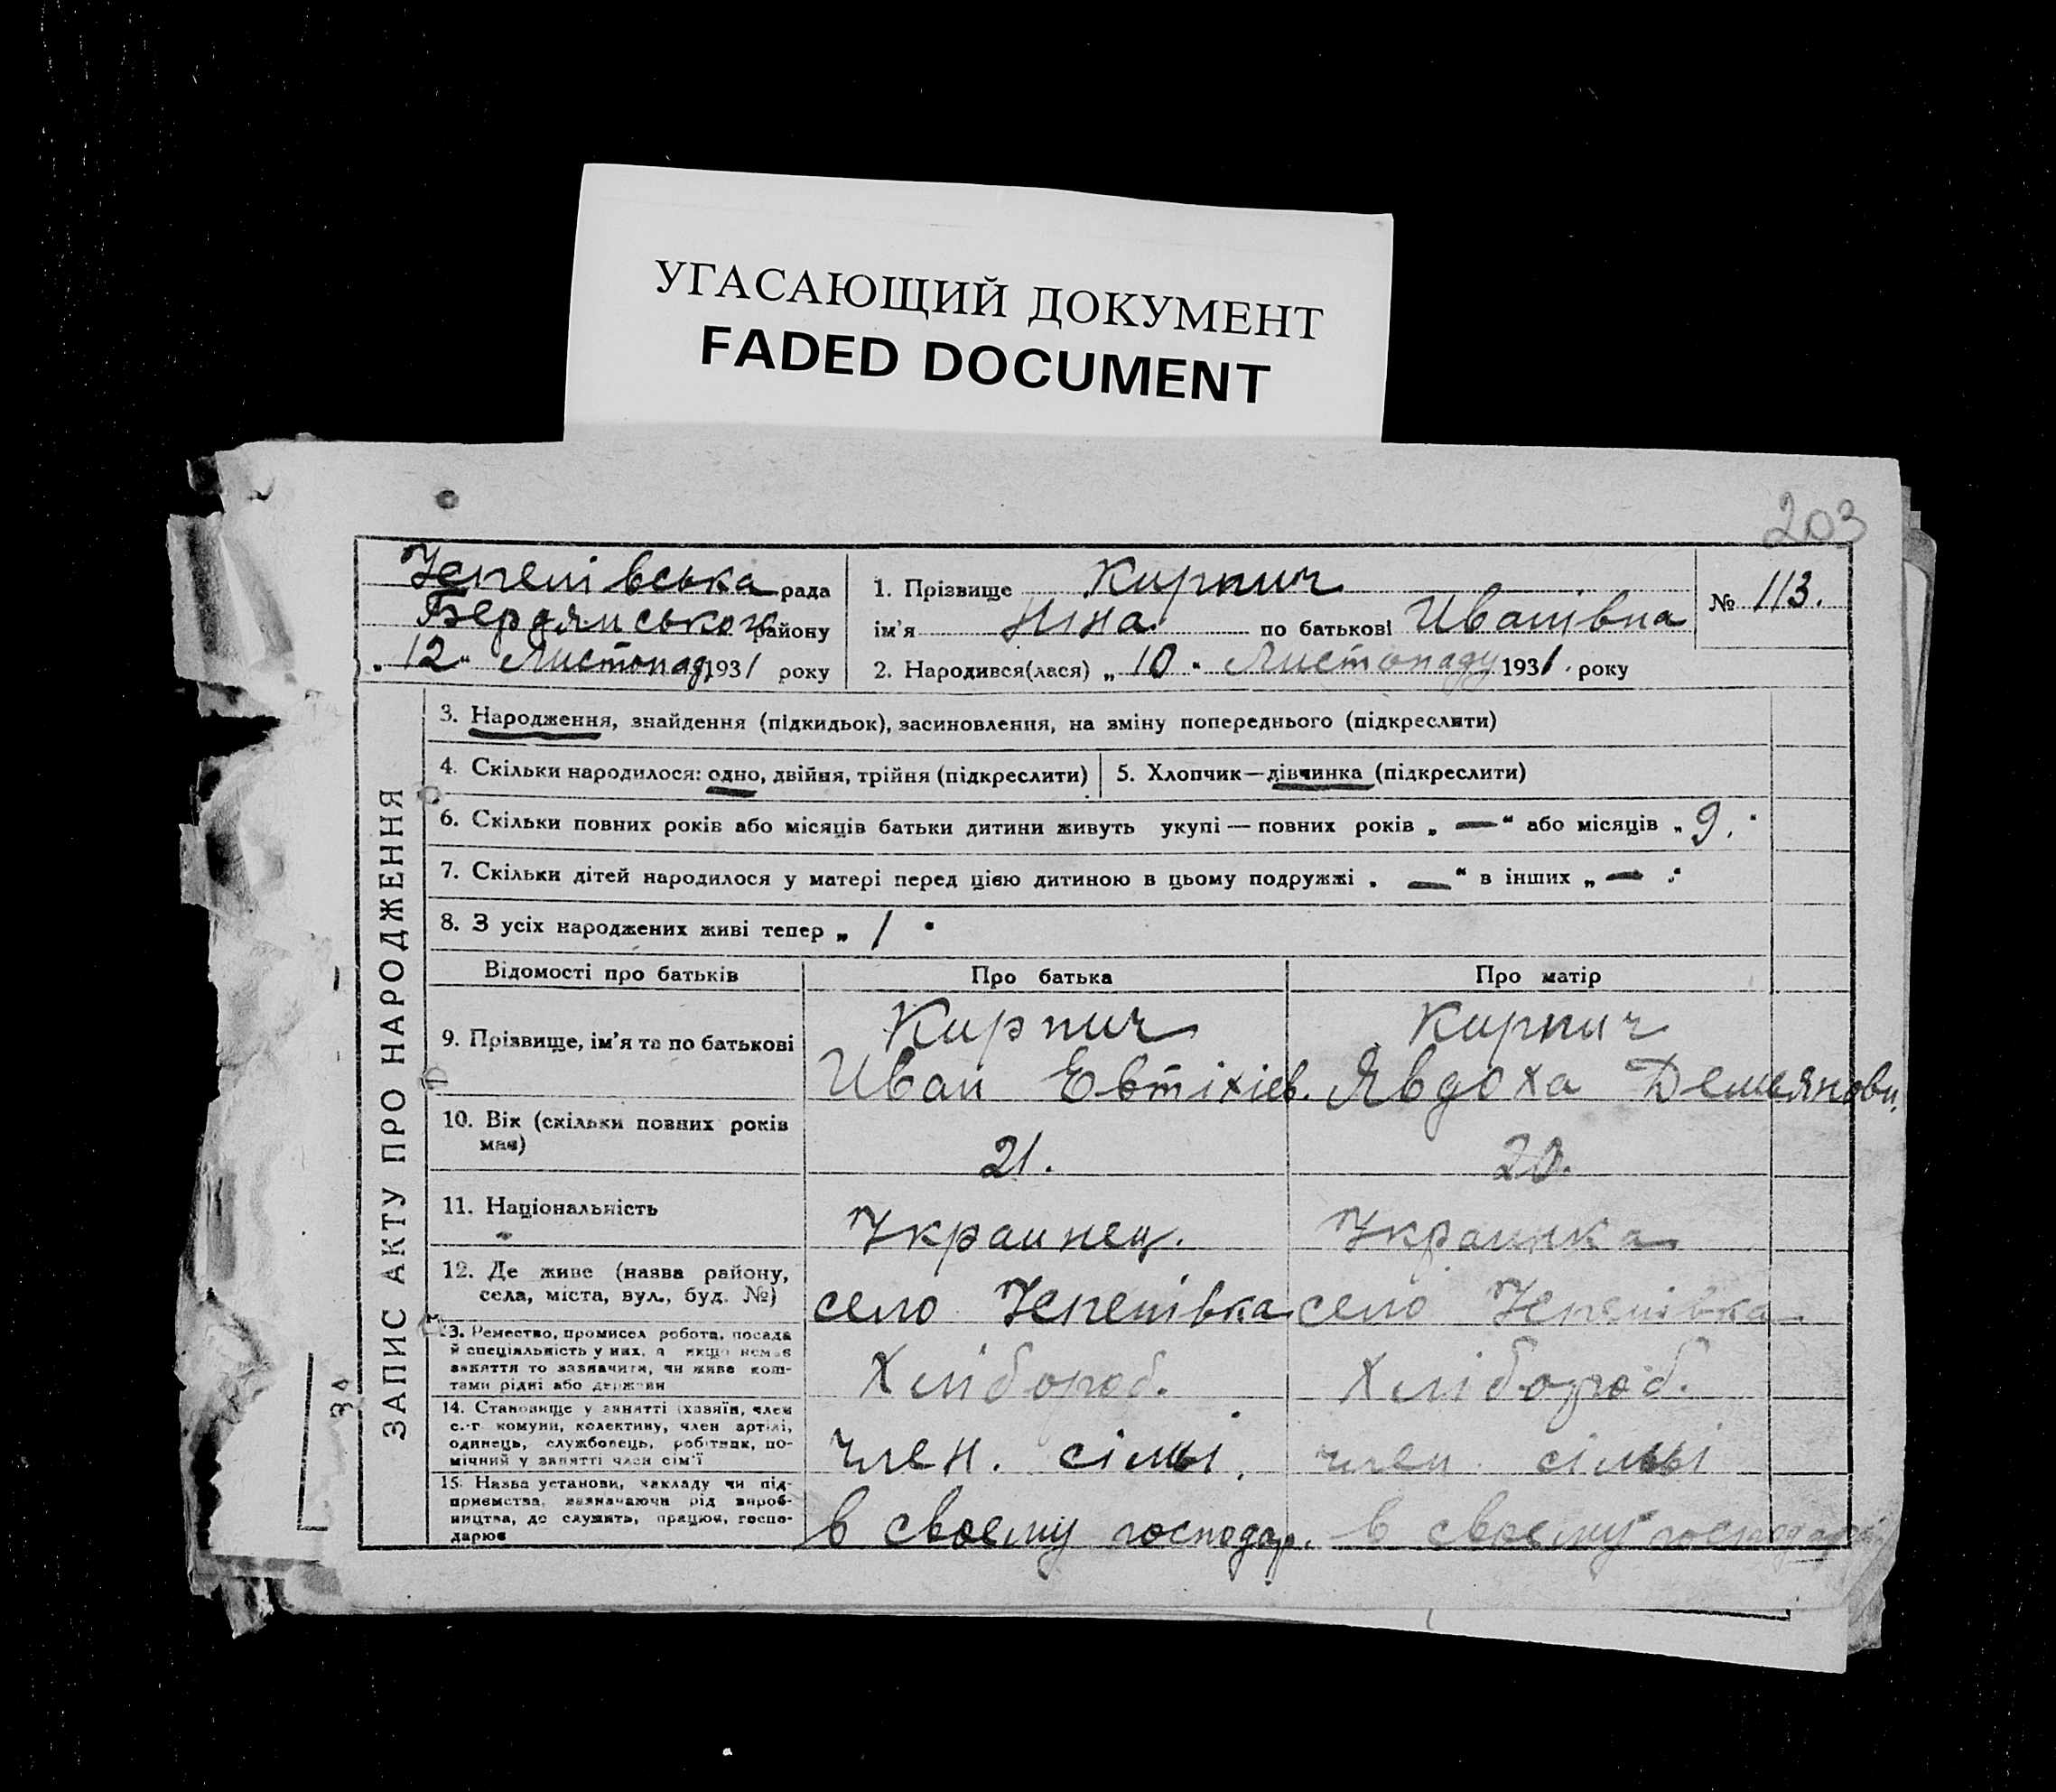 УГАСАЮЩИЙ ДОКУМЕНТ
FADED DOCUMENT
203
Успенівська рада
Бердянського району
„12" Листопад 1931 року
1. Прізвище Кирпич
ім'я Ніна по батькові Иванівна
№ 113.
2. Народився(лася) „10" Листопаду 1931 року
ЗАПИС АКТУ ПРО НАРОДЖЕННЯ
3. Народження, знайдення (підкидьок), засиновлення, на зміну попереднього (підкреслити)
4. Скільки народилося: одно, двійня, трійня (підкреслити)
5. Хлопчик—дівчинка (підкреслити)
6. Скільки повних років або місяців батьки дитини живуть укупі — повних років „ — " або місяців „ 9. "
7. Скільки дітей народилося у матері перед цією дитиною в цьому подружжі „ — " в інших „ — "
8. З усіх народжених живі тепер „ 1 "
Відомості про батьків
Про батька
Про матір
9. Прізвище, ім'я та по батькові
Кирпич
Иван Евтіхіев.
Кирпич
Явдоха Демьянови.
10. Вік (скільки повних років
має)
21.
20.
11. Національність
Украинец.
Украинка
12. Де живе (назва району,
села, міста, вул., буд. №)
село Успенівка
село Успенівка
13. Ремество, промисел робота, посада
й спеціяльність у них, а якщо немає
заняття то зазначити, чи живе кош-
тами рідні або держави
Хлібороб.
Хлібороб.
14. Становище у занятті (хазяїн, член
с.-г. комуни, колективу, член артілі,
одинець, службовець, робітник, по-
мічний у занятті член сім'ї
член. сімьі.
член сімьі
15. Назва установи, закладу чи під-
приємства, зазначаючи рід вироб-
ництва, де служить, працює, госпо-
дарює
в своему господар.
в своему господар